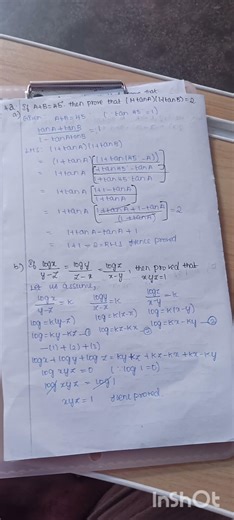 If A+B=45° then prove that (1+tanA)(1+tanB)=2
a) Given A+B=45 (∵ tan 45 =1)
tanA+tanB
1-tanA tanB
LHS (1+tanA)(1+tanB)
= (1+tanA) [1+tan(45-A)]
= 1+tanA [1+ tan45-tanA
1+tan45·tanA]
= 1+tanA [1+1-tanA
1+tanA]
= 1+tanA [1+tanA+1-tanA
1+tanA] = 2
= 1+tanA-tanA+1
= 1+1 = 2 = RHS Hence proved
b) If logx/y-z = logy/z-x = logz/x-y, then proved that
xyz=1
Let us assume,
logx/y-z = k logy/z-x = k logz/x-y = k
logx=k(y-z) logy=k(z-x) logz=k(x-y)
logx=ky-kz-① logy=kz-kx-② logz=kx-ky-③
-(1)+(2)+(3)
logx+logy+logz=ky-kz+kz-kx+kx-ky
log xyz=0 (∵ log 1=0)
log xyz = log 1
xyz=1 Hence proved
InShot